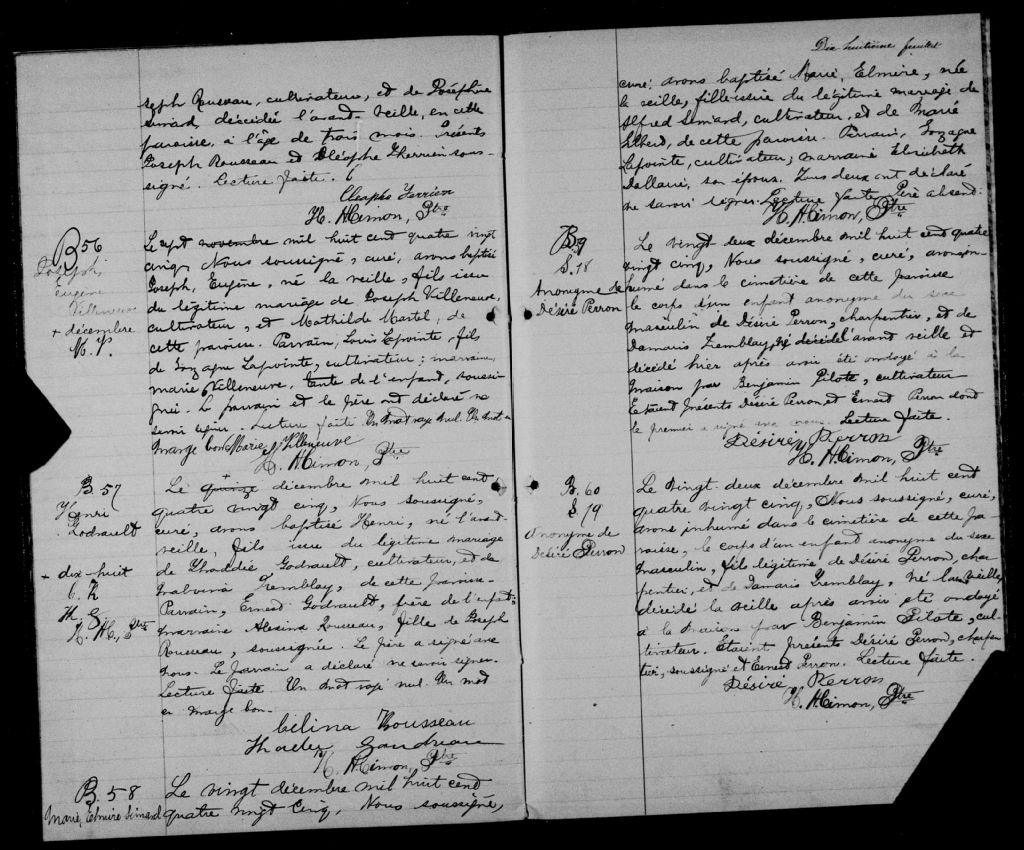 seph Rousseau, cultivateur, et de Joséphine
Simard, décédé l'avant-veille, en cette
paroisse, à l'âge de trois mois. Présents
Joseph Rousseau et Cléophe Therrien sous-
signé. Lecture faite.
Cleophe Terrien
H. A. Simon, Ptre
B 56
Joseph
Eugène
Villeneuve
+ décembre
Le sept novembre mil huit cent quatre vingt
cinq, Nous soussigné, curé, avons baptisé
Joseph, Eugène, né la veille, fils issu
du légitime mariage de Joseph Villeneuve,
cultivateur, et Mathilde Martel, de
cette paroisse. Parrain, Louis Lapointe, fils
de Gonzague Lapointe, cultivateur; marraine,
Marie Villeneuve, tante de l'enfant, soussi-
gnée. Le parrain et le père ont déclaré ne
savoir signer. Lecture faite. Un mot rayé nul. Un mot en
marge bon Marie Villeneuve
H. A. Simon, Ptre
B. 57
Henri
Godrault
+ dix-huit
+
Le quinze décembre mil huit cent
quatre vingt cinq, Nous soussigné,
curé, avons baptisé Henri, né l'avant-
veille, fils issu du légitime mariage
de Thaddé Godrault, cultivateur, et de
Tremblay, de cette paroisse.
Parrain, Ernest Godrault, frère de l'enfant;
marraine Rousseau, fille de Joseph
Rousseau, soussignée. Le père a signé avec
nous. Le parrain a déclaré ne savoir signer.
Lecture faite. Un mot rayé nul. Un mot
en marge bon.
Célina Rousseau
Gaudreau
H. A. Simon, Ptre
B. 58
Marie, Elmire Simard
Le vingt décembre mil huit cent
quatre vingt cinq, Nous soussigné,
Dix huitième feuillet
curé, avons baptisé Marie, Elmire, née
la veille, fille issue du légitime mariage de
Alfred Simard, cultivateur, et de Marie
de cette paroisse. Parrain, Gonzague
Lapointe, cultivateur; marraine Elizabeth
Dallaire, son épouse. Tous deux ont déclaré
ne savoir signer. Lecture faite. Père absent.
H. A. Simon, Ptre
B. 59
S. 78
Anonyme de
Désiré Perron
Le vingt deux décembre mil huit cent quatre
vingt cinq, Nous soussigné, curé, avons in-
humé dans le cimetière de cette paroisse
le corps d'un enfant anonyme du sexe
masculin de Désiré Perron, charpentier, et de
Damaris Tremblay, né l'avant veille et
décédé hier après avoir été ondoyé à la
maison par Benjamin Pilote, cultivateur
Etaient présents Désiré Perron et Ernest Perron dont
le premier a signé avec nous. Lecture faite.
Désiré Perron
H. A. Simon, Ptre
B. 60
S. 79
Anonyme de
Désiré Perron
Le vingt deux décembre mil huit cent
quatre vingt cinq, Nous soussigné, curé,
avons inhumé dans le cimetière de cette pa-
roisse, le corps d'un enfant anonyme du sexe
masculin, fils légitime de Désiré Perron, char-
pentier, et de Damaris Tremblay, né la veille,
décédé la veille après avoir été ondoyé
à la maison par Benjamin Pilote, cul-
tivateur. Etaient présents Désiré Perron, charpen-
tier, soussigné et Ernest Perron. Lecture faite.
Désiré Perron
H. A. Simon, Ptre